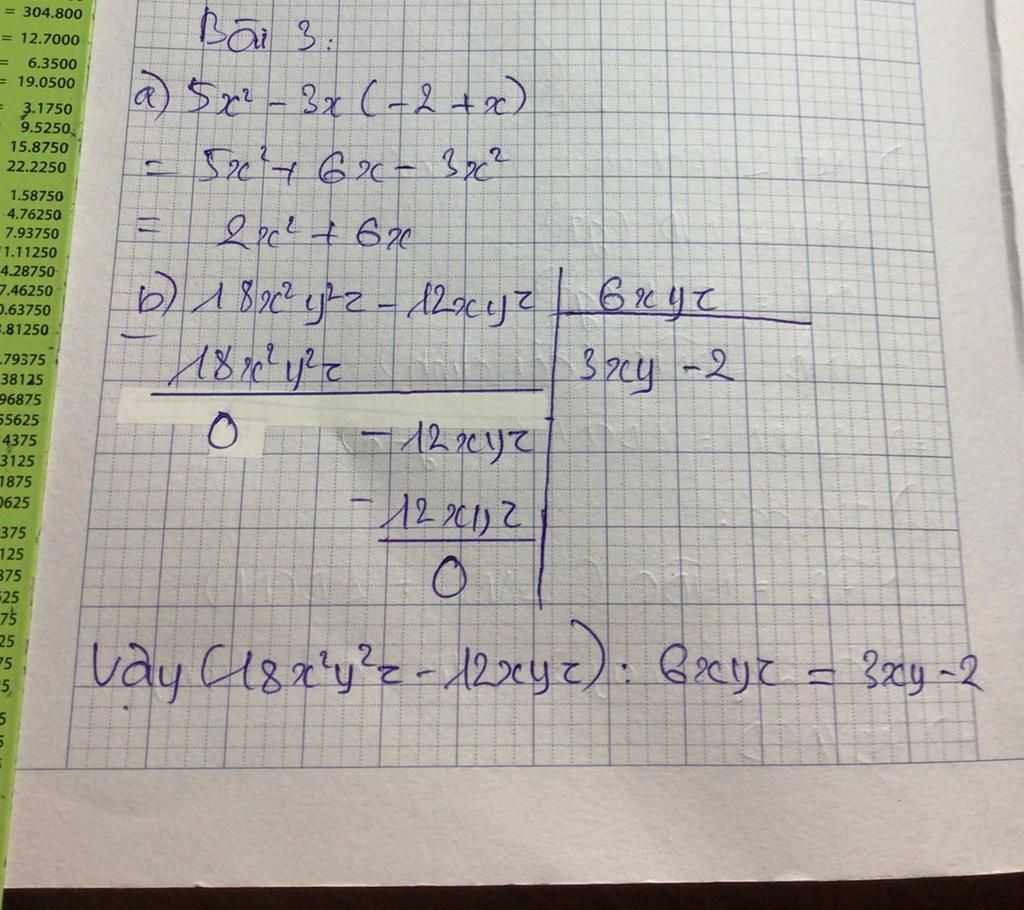 = 304.800
= 12.7000
= 6.3500
= 19.0500
= 3.1750
9.5250
15.8750
22.2250
1.58750
4.76250
7.93750
11.11250
4.28750
7.46250
0.63750
3.81250
.79375
38125
96875
55625
4375
3125
1875
0625
375
125
375
525
75
25
75
5
Bài 3:
a) 5x² - 3x (-2 + x)
= 5x² + 6x - 3x²
= 2x² + 6x
b) 18x²y²z - 12xyz | 6xyz
- 18x²y²z | 3xy - 2
0 - 12xyz
- 12xyz
0
Vậy (18x²y²z - 12xyz) : 6xyz = 3xy - 2